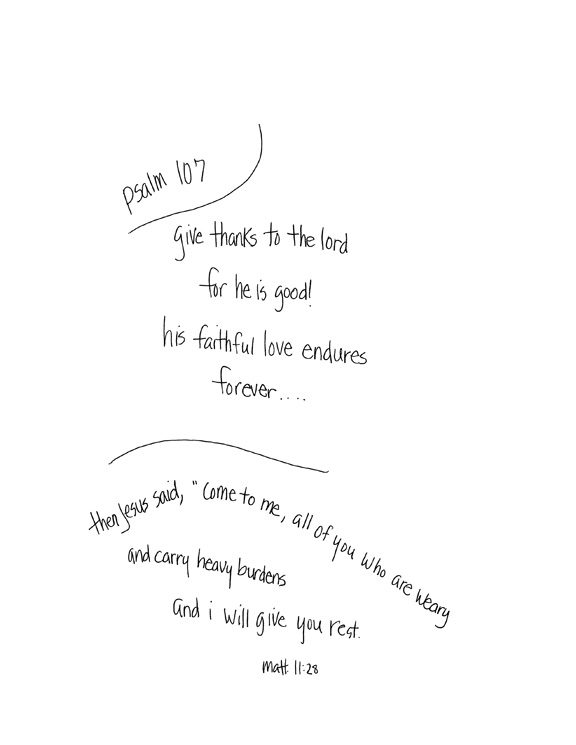 psalm 107
give thanks to the lord
for he is good!
his faithful love endures
forever....
then Jesus said, "Come to me, all of you who are weary
and carry heavy burdens
and i will give you rest.
matt 11:28